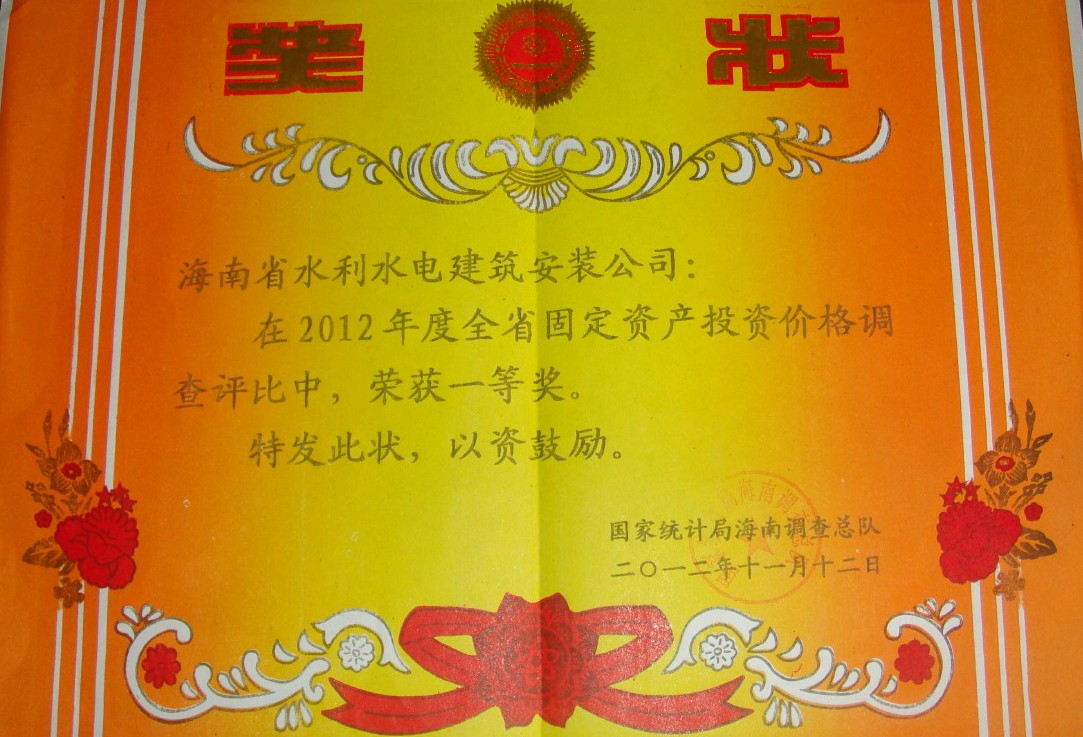 奖状
海南省水利水电建筑安装公司：
在2012年度全省固定资产投资价格调
查评比中，荣获一等奖。
特发此状，以资鼓励。
国家统计局海南调查总队
二〇一二年十一月十二日